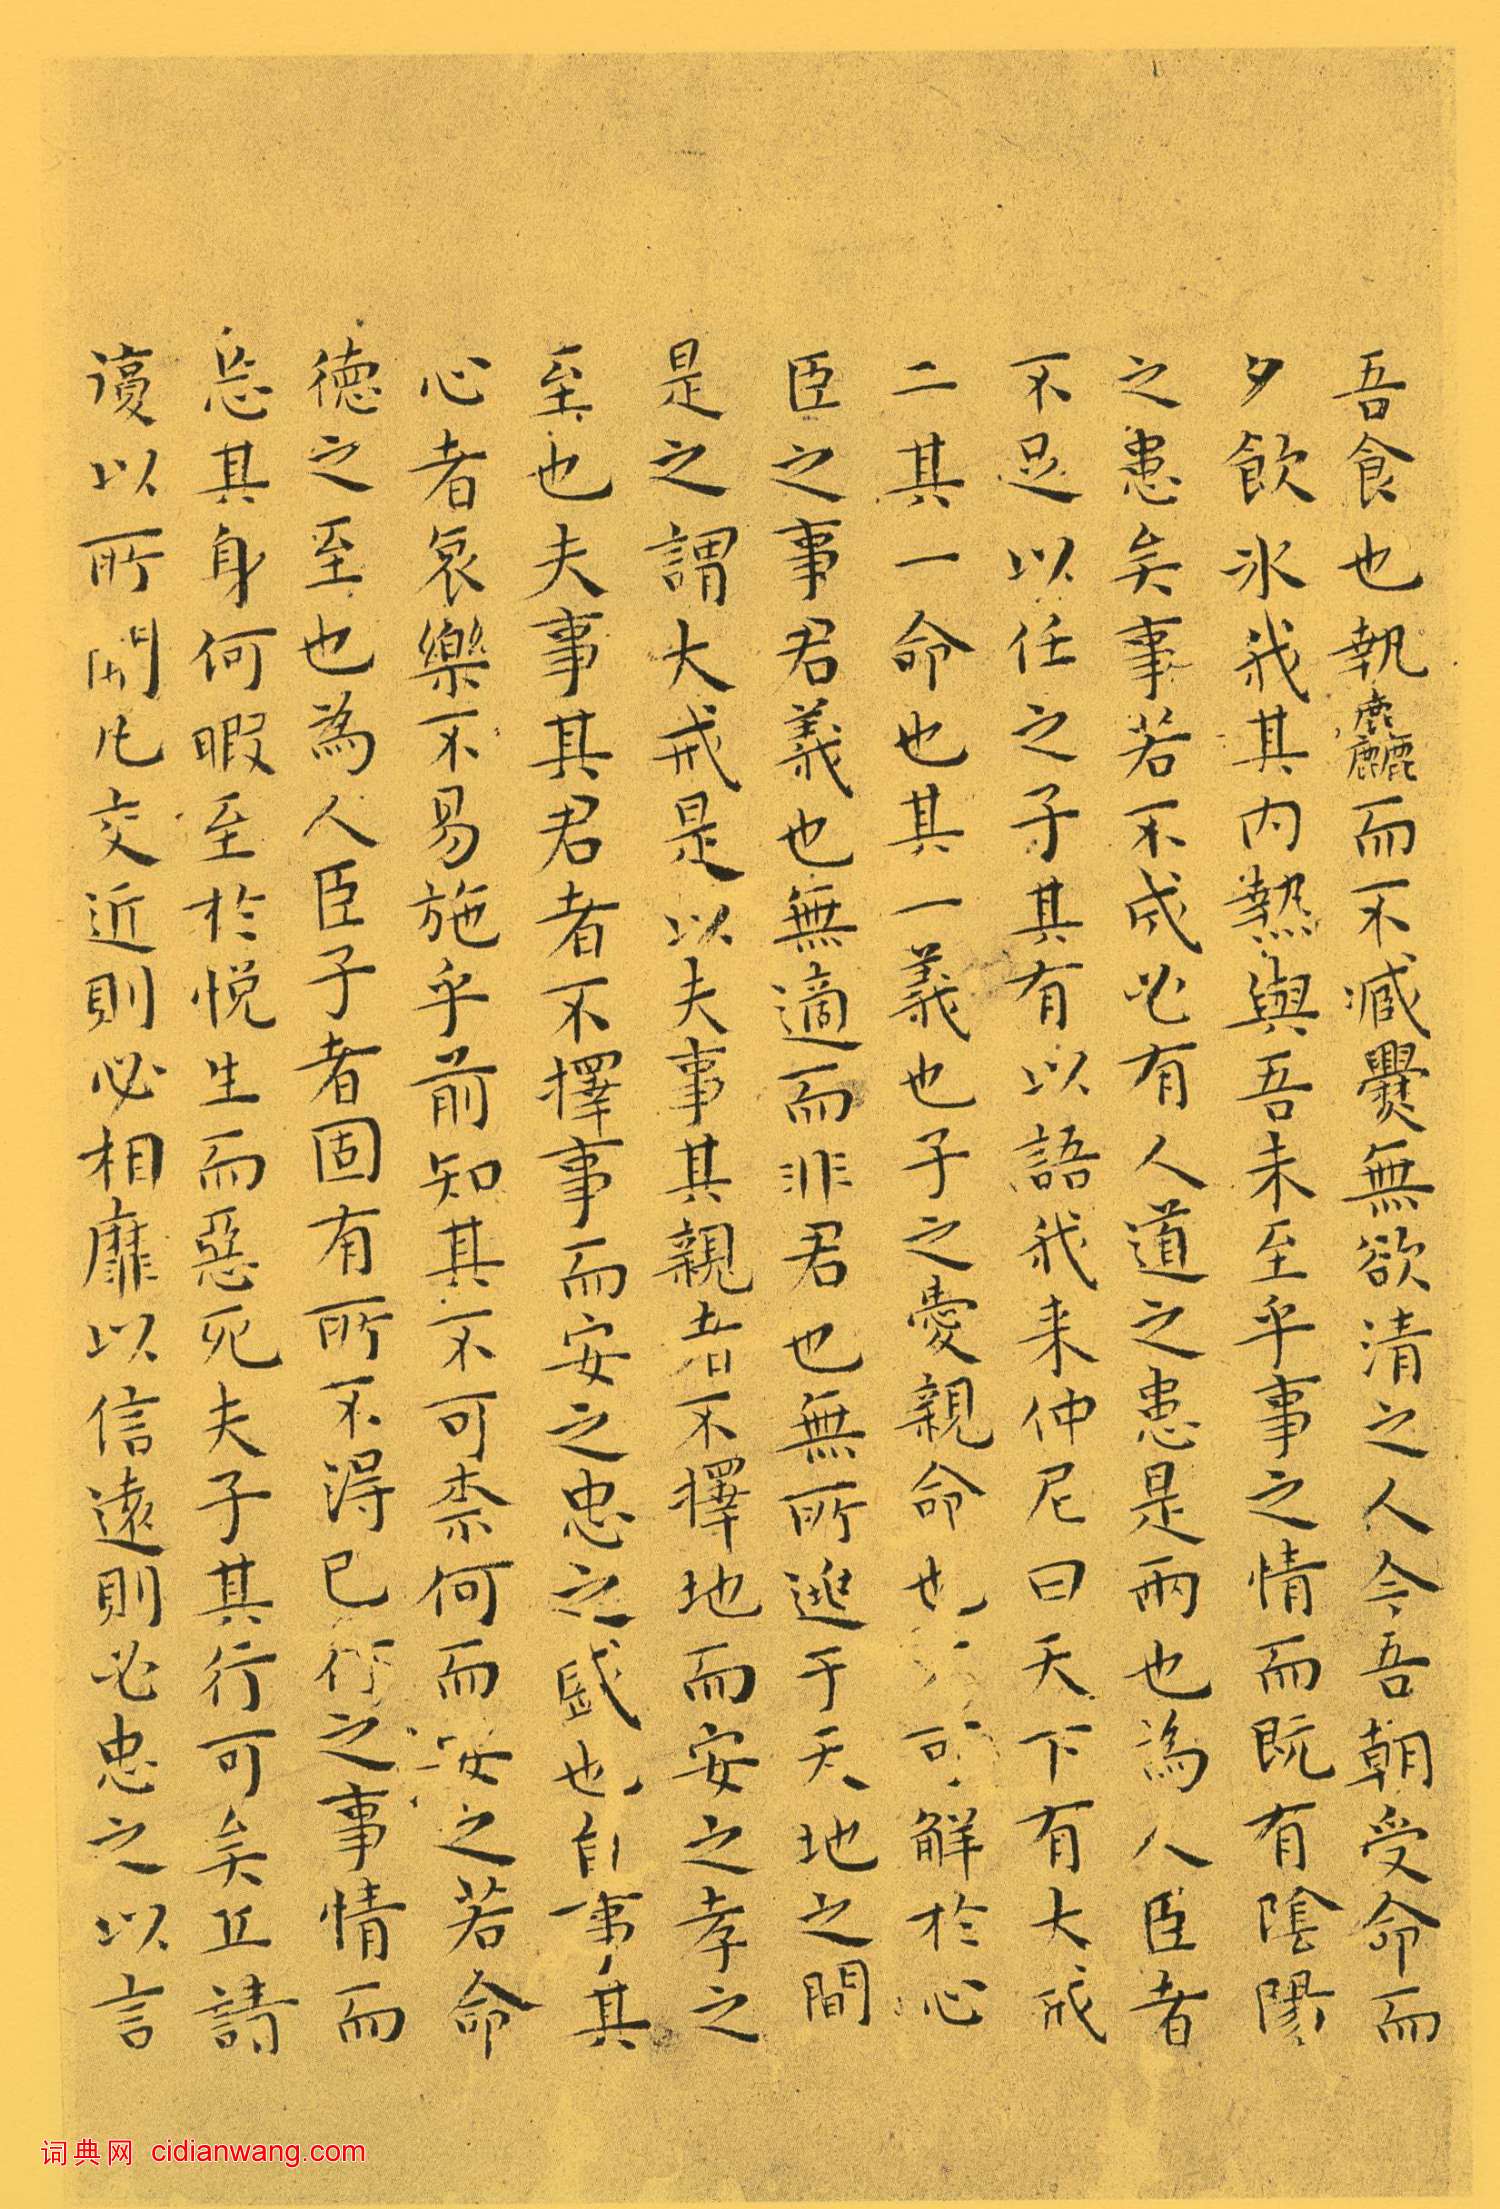 吾食也執麤而不臧爨無欲清之人今吾朝受命而
夕飲冰我其内熱與吾未至乎事之情而既有陰陽
之患矣事若不成必有人道之患是兩也為人臣者
不足以任之子其有以語我来仲尼曰天下有大戒
二其一命也其一義也子之愛親命也可解於心
臣之事君義也無適而非君也無所逃于天地之間
是之謂大戒是以夫事其親者不擇地而安之孝之
至也夫事其君者不擇事而安之忠之盛也自事其
心者哀樂不易施乎前知其不可柰何而安之若命
德之至也為人臣子者固有所不得已行之事情而
忘其身何暇至於悦生而惡死夫子其行可矣丘請
復以所聞凡交近則必相靡以信遠則必忠之以言
词典网 cidianwang.com